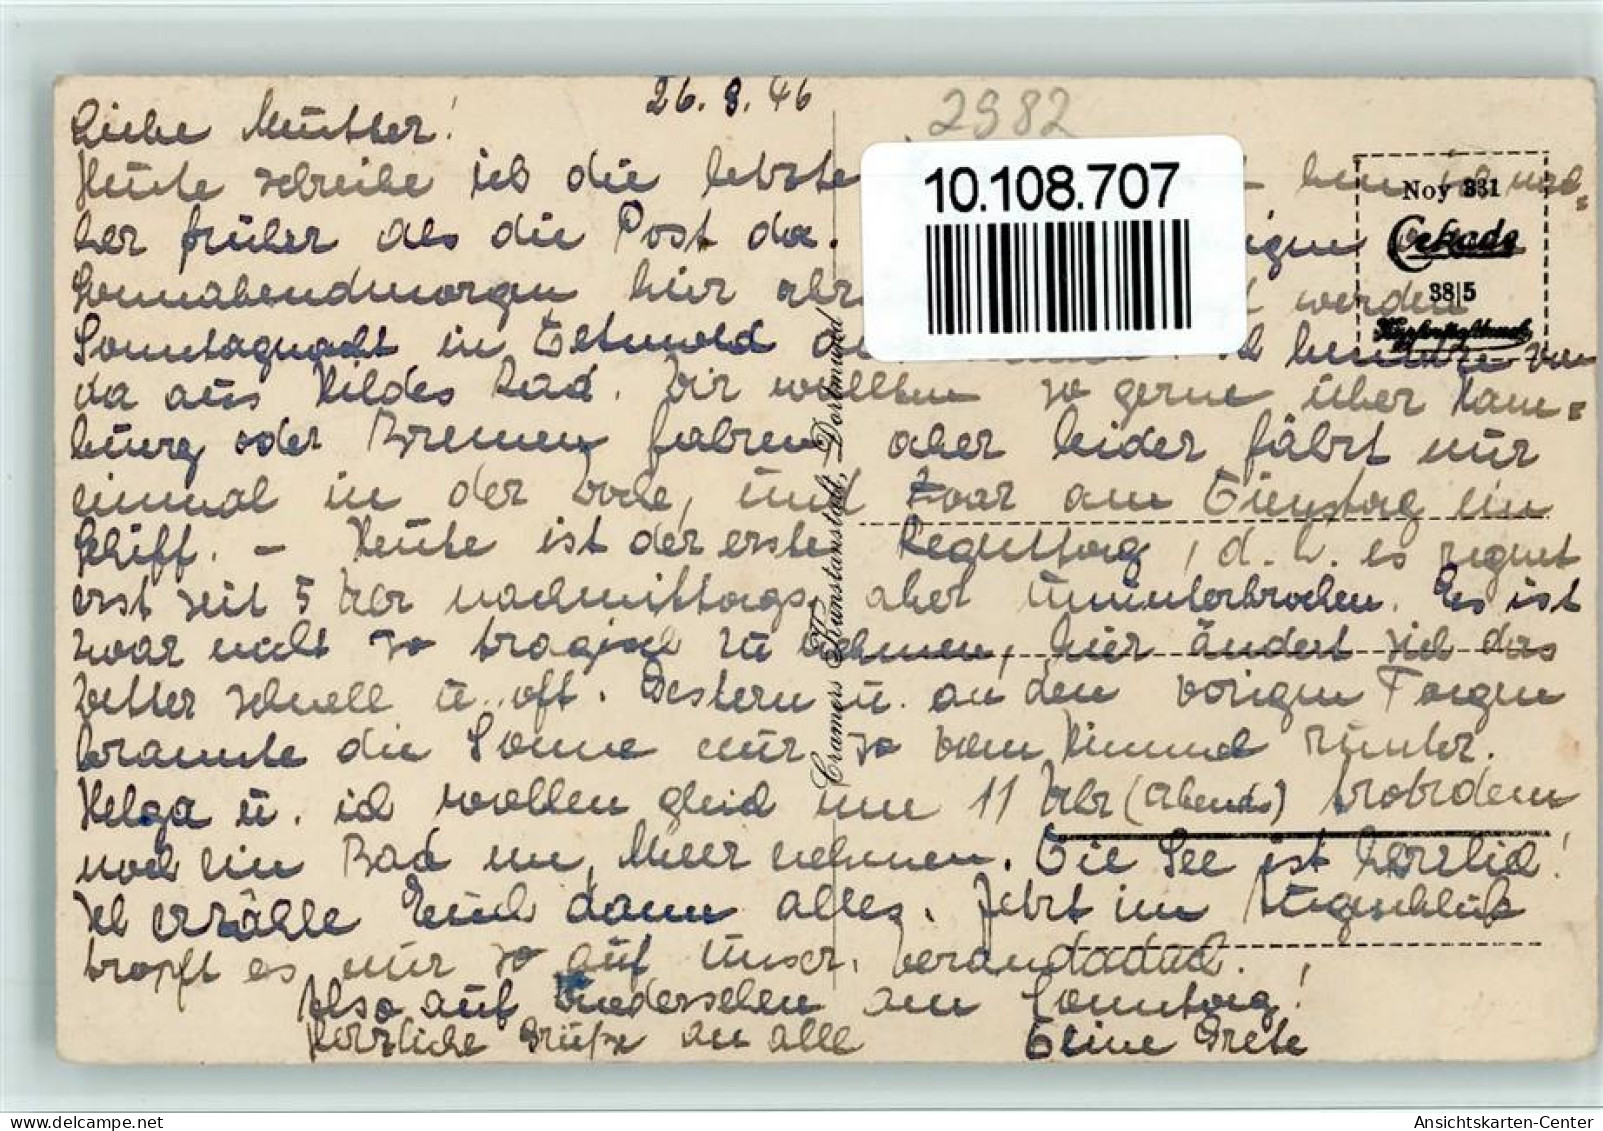 26.8.46
2982
Liebe Mutter!
Heute schreibe ich die letzte bin ich nach=
her früher als die Post da. igen
Sonnabendmorgen hier abr werden
Sonntagnacht in Detmold an ich benutze von
da aus Hildes Rad. Wir wollten so gerne über Ham=
burg oder Bremen fahren aber leider fährt nur
einmal in der Woche, und zwar am Dienstag ein
Schiff. – Heute ist der erste Regentag, d. h. es regnet
erst seit 5 Uhr nachmittags, aber ununterbrochen. Es ist
zwar nicht so tragisch zu nehmen, hier ändert sich das
Wetter schnell u. oft. Gestern u. an den vorigen Tagen
brannte die Sonne nur so vom Himmel runter.
Helga u. ich wollen gleich um 11 Uhr (abends) trotzdem
noch ein Bad im Meer nehmen. Die See ist herrlich!
Ich erzähle Euch dann alles. Jetzt im Augenblick
tropft es nur so auf unser. Verandadach.
Also auf Wiedersehen am Sonntag!
Herzliche Grüße an alle Deine Grete
10.108.707
Nov 331
Cekade
38|5
Kupfertiefdruck
Cramers Kunstanstalt, Dortmund
Ansichtskarten-Center